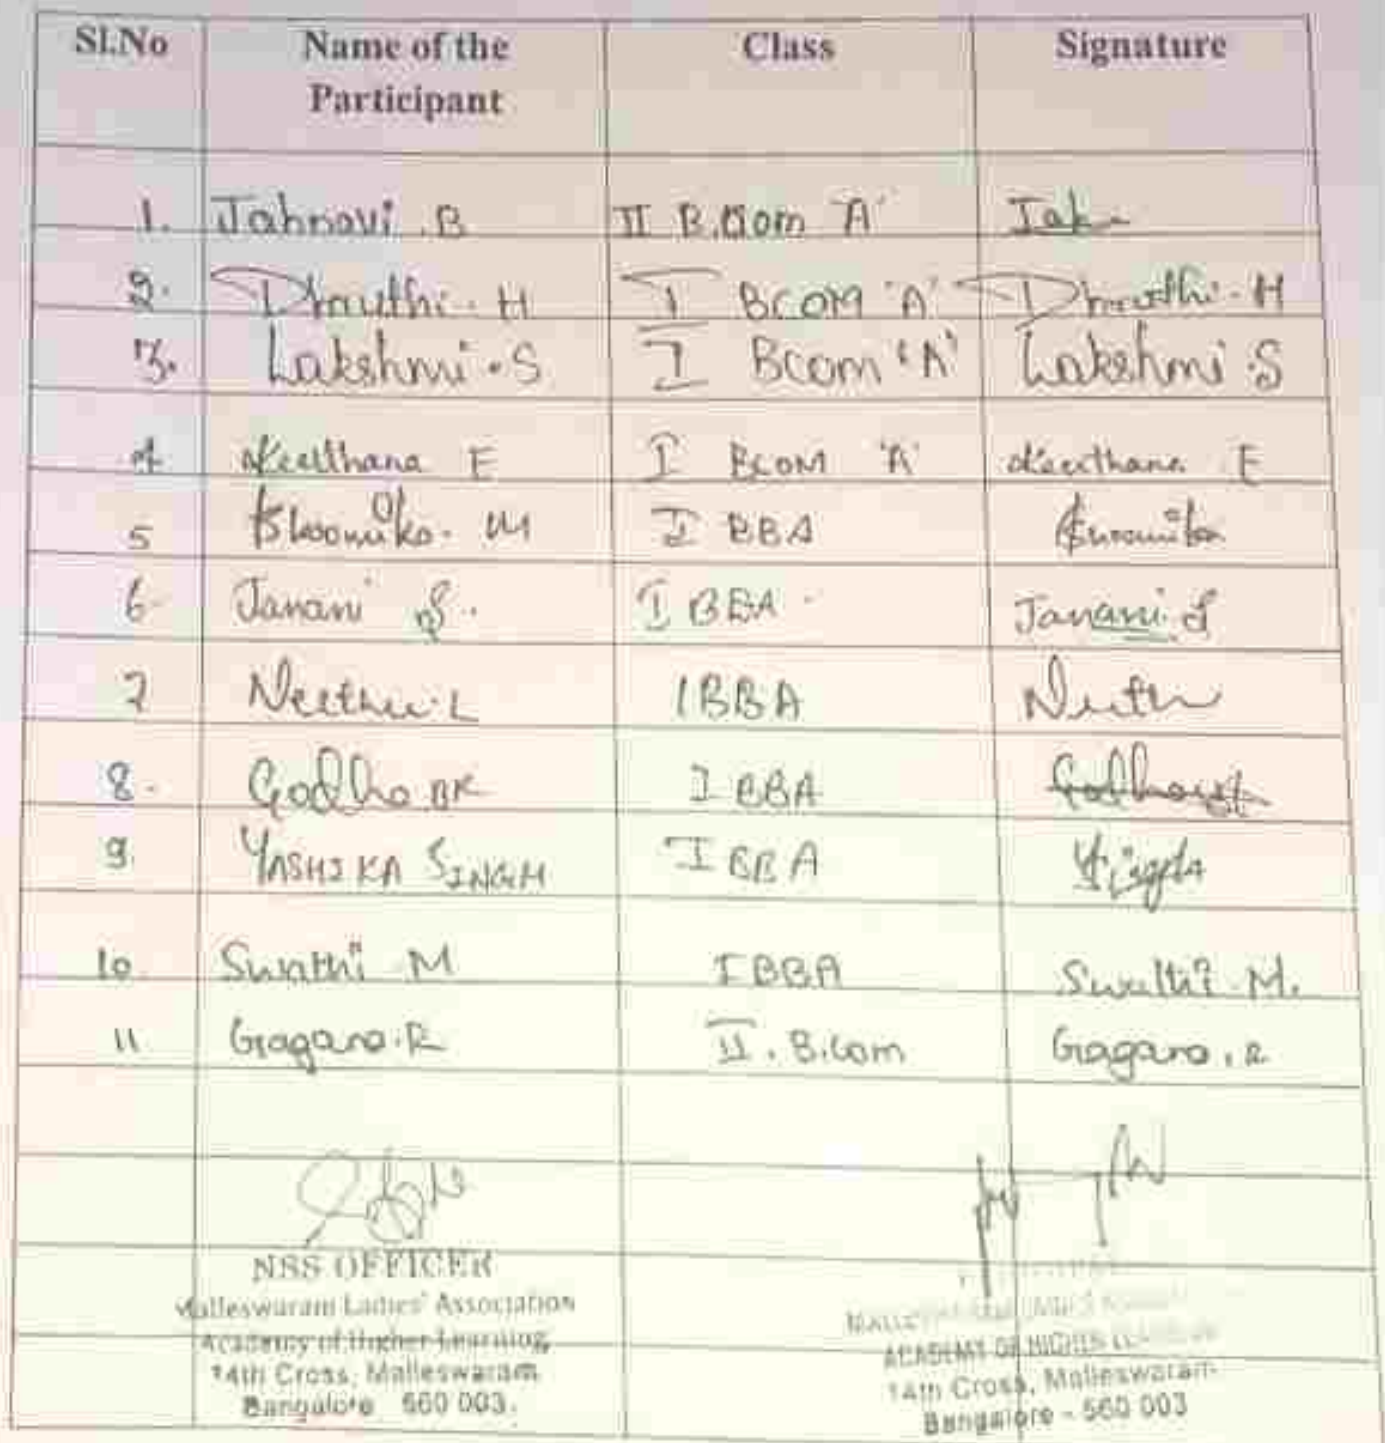 Sl.No Name of the Participant Class Signature
1. Jahnavi .B II B.Com 'A' Jah
2. Dhruthi. H I BCOM 'A' Dhruthi. H
3. Lakshmi .S I Bcom 'A' Lakshmi .S
4 Keerthana E I BCOM 'A' Keerthana E
5 Bhoomika. M I BBA Bhoomika
6 Janani S. I BBA Janani. S
7 Neethu.L I BBA Neethu
8. Godha.BK I BBA
9. YASHIKA SINGH I BBA
10 Swathi M I BBA Swathi M.
11 Gagana.R II. B.Com Gagana.R
NSS OFFICER
Malleswaram Ladies' Association
Academy of Higher Learning
14th Cross, Malleswaram
Bangalore 560 003.
ACADEMY OF HIGHER
14th Cross, Malleswaram
Bangalore - 560 003